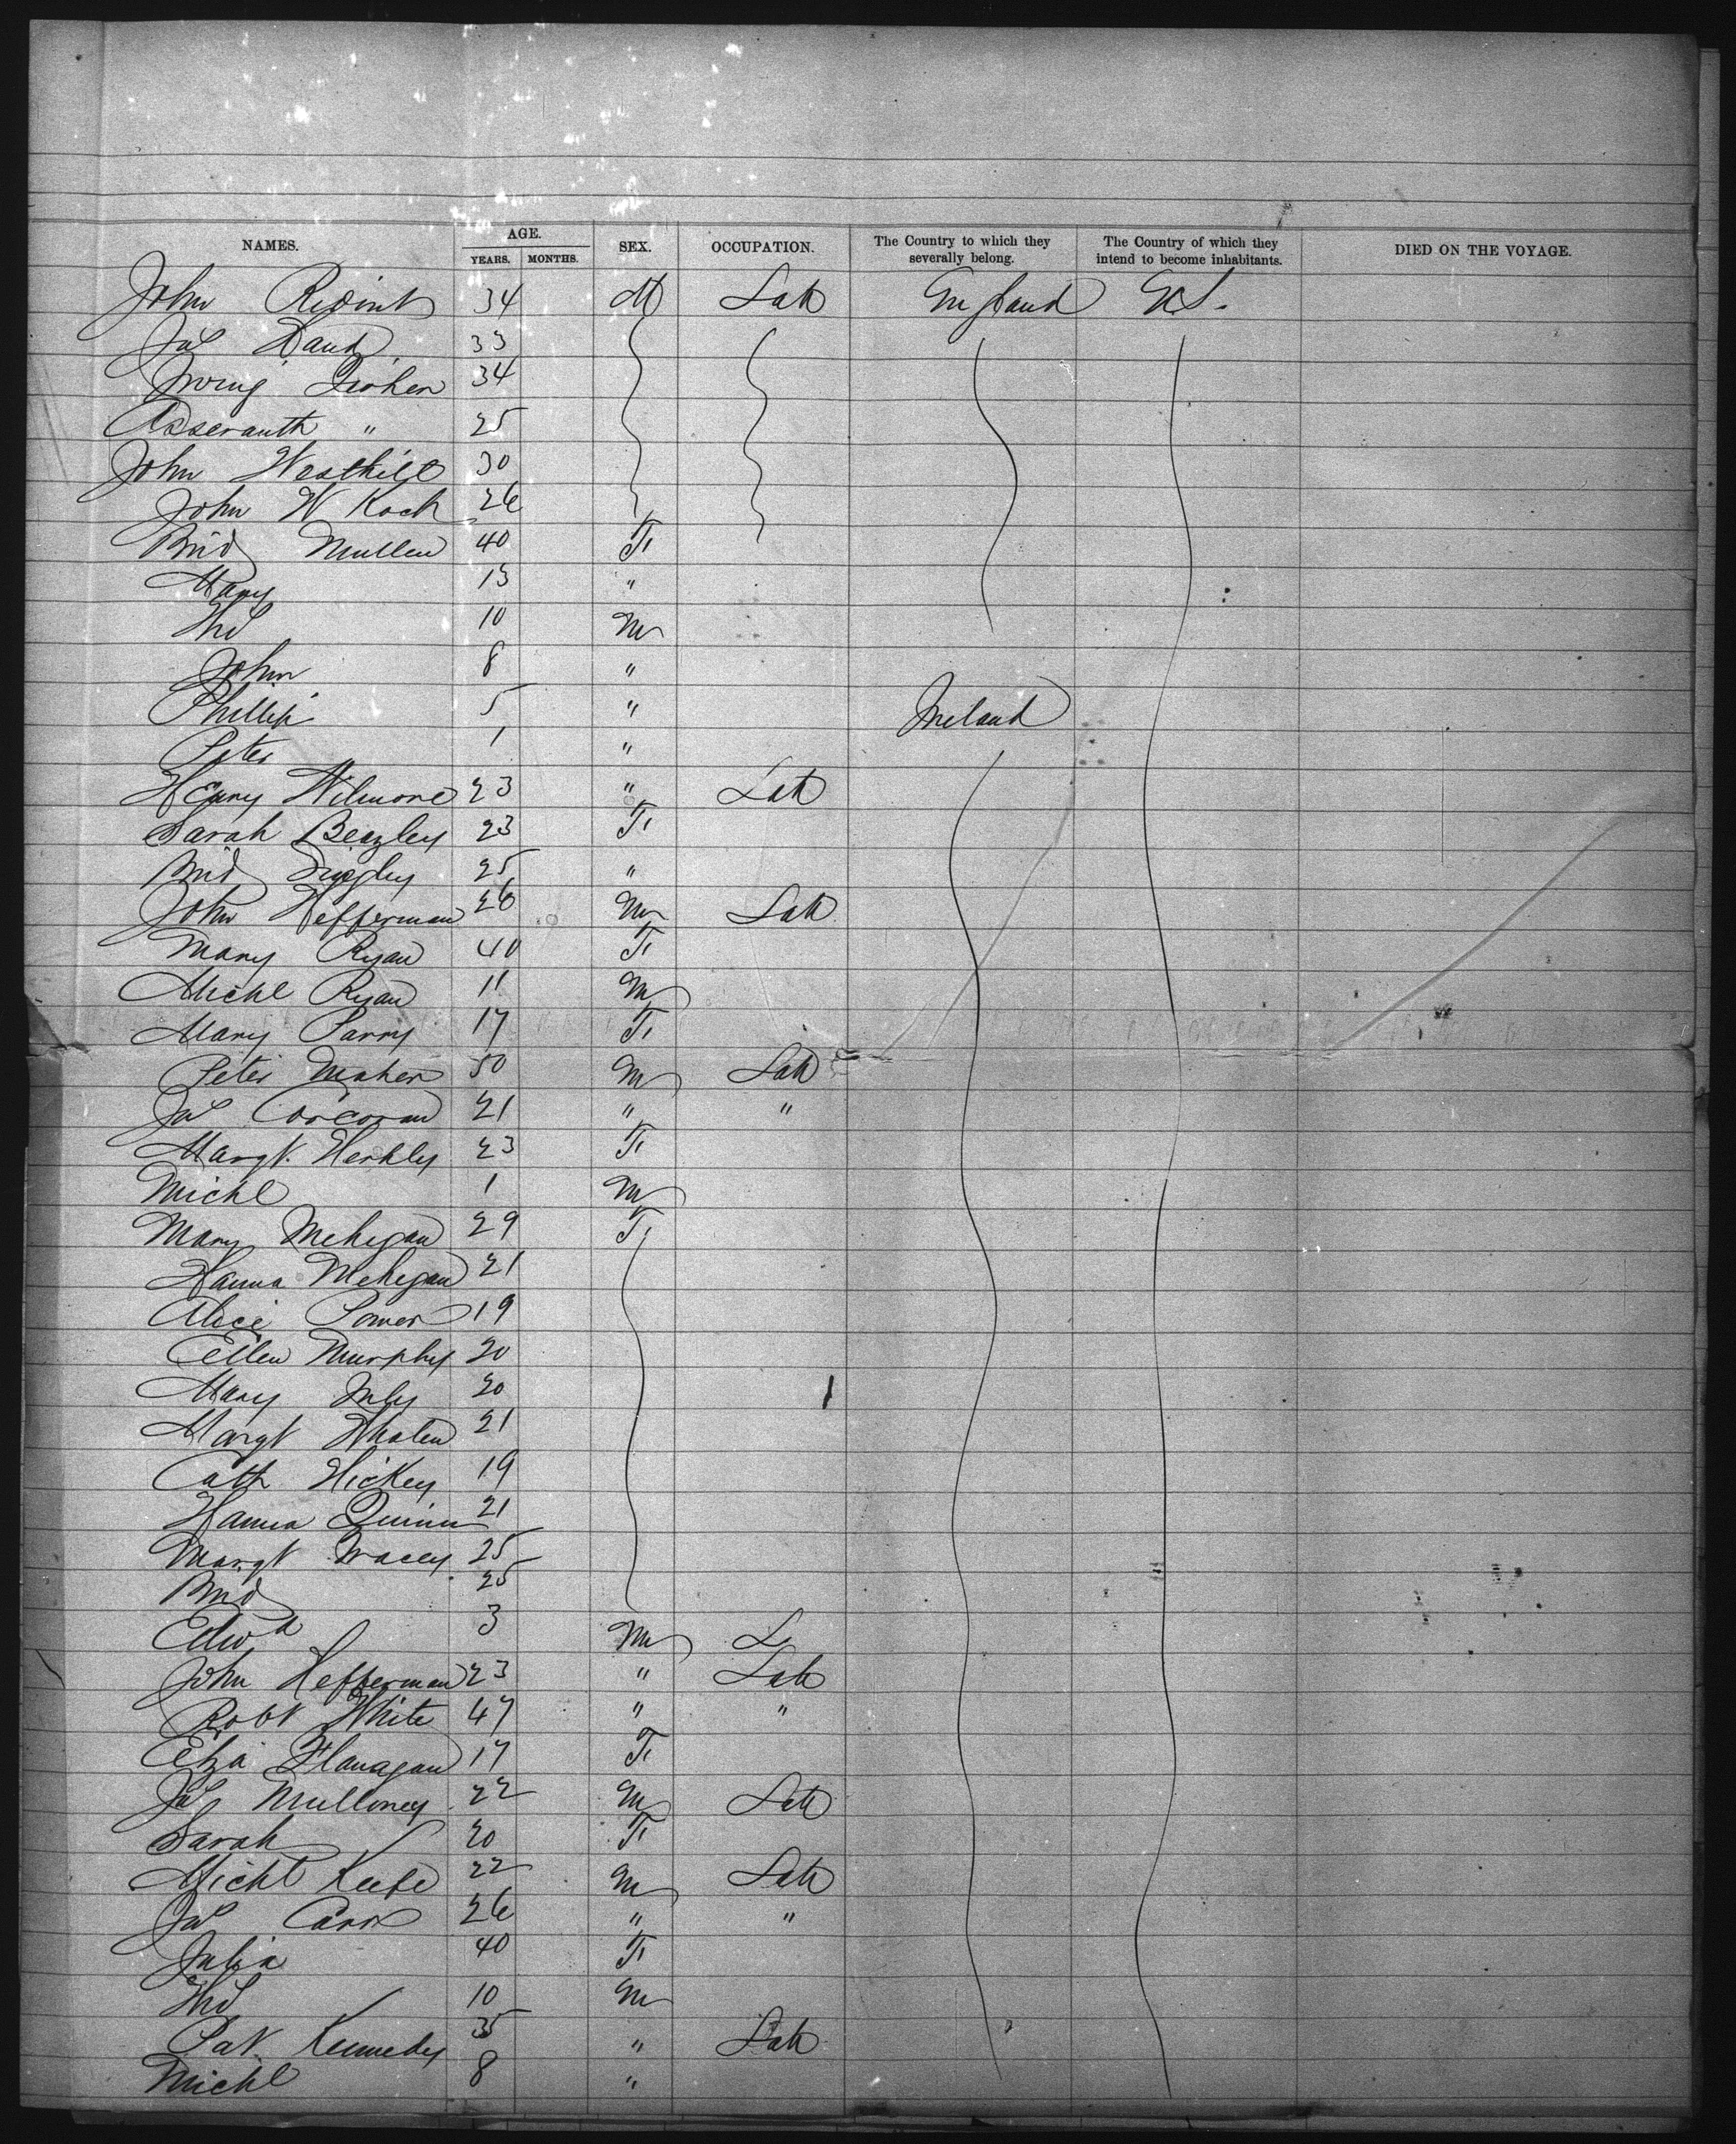 NAMES. AGE. SEX. OCCUPATION. The Country to which they severally belong. The Country of which they intend to become inhabitants. DIED ON THE VOYAGE.
YEARS. MONTHS.
John 34 M Lab England U.S.
Jas 33
34
" 25
John 30
John W Koch 26
Brid Mullen 40 F
Mary 13 "
Ths 10 M
John 8 "
Phillip 5 " Ireland
Peter 1 "
Henry Wilmore 23 " Lab
Sarah Beazley 23 F
Brid 25 "
John Hefferman 26 M Lab
Mary Ryan 40 F
Michl Ryan 11 M
Mary Parry 17 F
Peter Maher 50 M Lab
Jas Corcoran 21 " "
Margt. Herhley 23 F
Michl 1 M
Mary Mehegan 29 F
Hanna Mehegan 21
Alice Power 19
Ellen Murphy 20
Mary 20
Margt Whalen 21
Cath Hickey 19
Hanna Quinn 21
Margt Tracey 25
Brid 25
Edwd 3 M L
John Hefferman 23 " Lab
Robt White 47 " "
Eliza Flanagan 17 F
Jas Mulloney 22 M Lab
Sarah 20 F
Michl Keefe 22 M Lab
Jas Carr 26 " "
Julia 40 F
Ths 10 M
Pat. Kennedy 35 " Lab
Michl 8 "